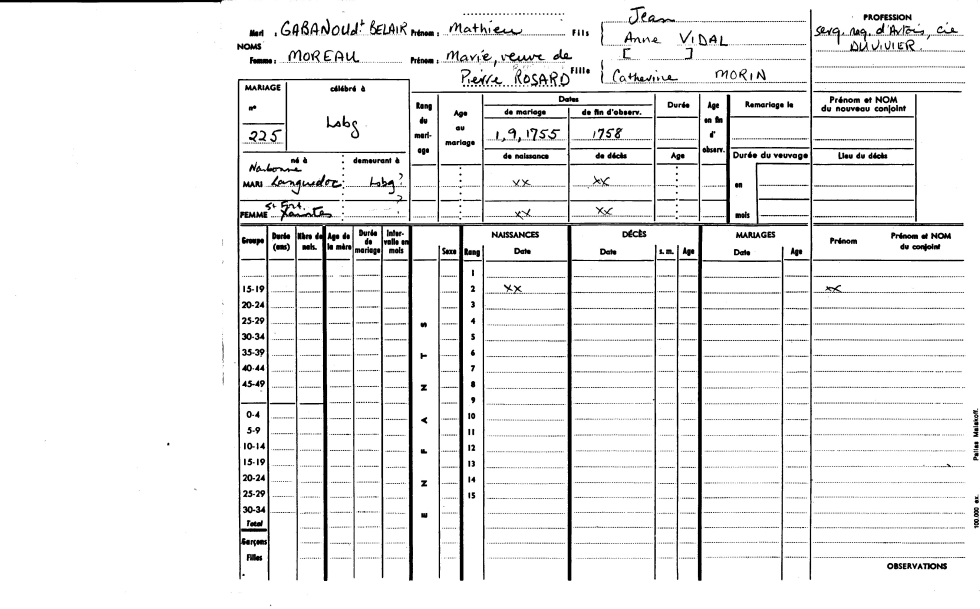 Jean
Mari : GABANOU dt BELAIR Prénom : Mathieu Fils Anne VIDAL
NOMS
Femme : MOREAU Prénom : Marie, veuve de Pierre ROSARD Fille [ ] Catherine MORIN
PROFESSION
serg. reg. d'Artois, cie
DUVIVIER.
MARIAGE célébré à
n°
225 Lsbg
Rang du mariage
Age au mariage
Dates
de mariage de fin d'observ.
1,9,1755 1758
de naissance de décès
Durée
Age
Age en fin d'observ.
Remariage le
Durée du veuvage
en
mois
Prénom et NOM
du nouveau conjoint
Lieu du décès
né à demeurant à
Narbonne
MARI Languedoc Lsbg ?
xx xx
?
FEMME Xaintes
xx xx
Groupe Durée (ans) Nbre de nais. Age de la mère Durée de mariage Intervalle en mois
ENFANTS
Sexe Rang
NAISSANCES DÉCÈS MARIAGES
Date Date s. m. Age Date Age Prénom Prénom et NOM du conjoint
1
15-19 2 xx xx
20-24 3
25-29 4
30-34 5
35-39 6
40-44 7
45-49 8
9
0-4 10
5-9 11
10-14 12
15-19 13
20-24 14
25-29 15
30-34
Total
Garçons
Filles
OBSERVATIONS
100.000 ex. Pallas Malakoff.